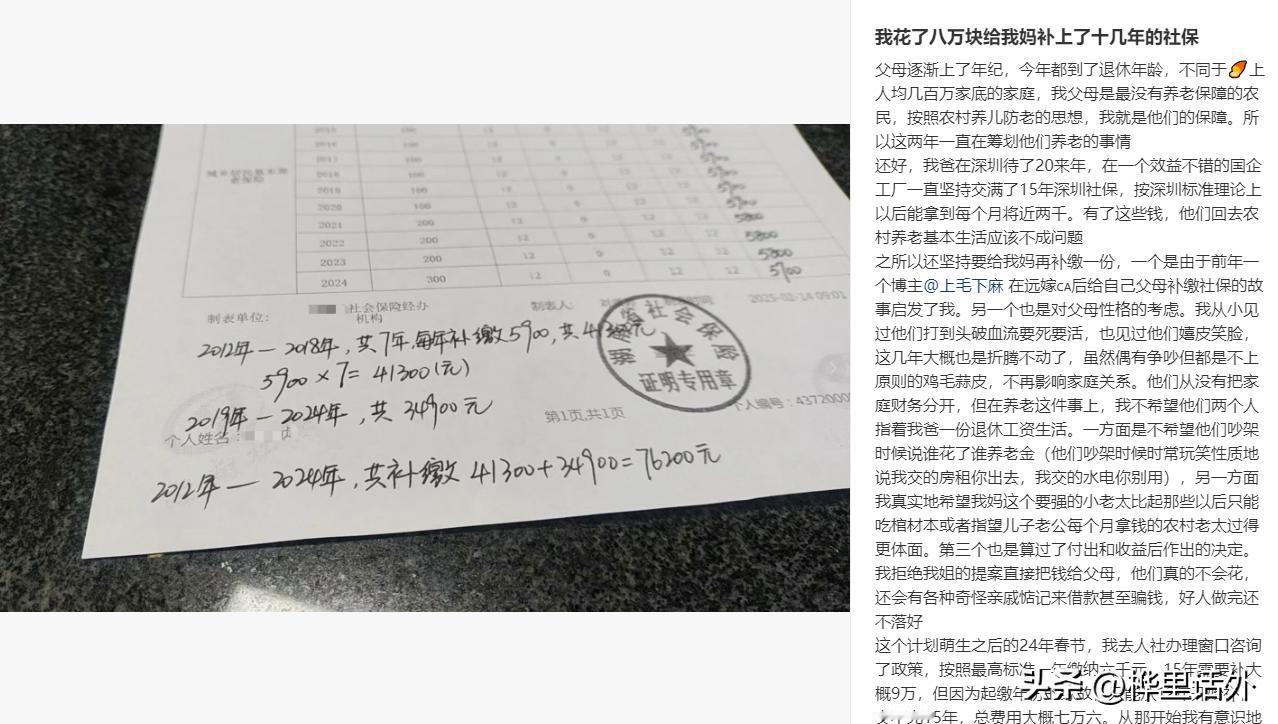 2016
2017
2018
2019
2020 100
2021 200 12 0 12 12 5800
2022 200 12 0 12 12 5800
2023 200 12 0 12 12 5800
2024 300 12 0 12 12 5700
制表单位:
社会保险经办
机构
制表人:
2025-02-14 09:01
2012年—2018年,共7年,每年补缴5900,共41300元
5900×7=41300(元)
2019年—2024年,共 34900元
社会保险
证明专用章
第1页,共1页
个人姓名:
个人编号:43720000
2012年—2024年,共补缴 41300+34900=76200元
我花了八万块给我妈补上了十几年的社保
父母逐渐上了年纪,今年都到了退休年龄,不同于上
人均几百万家底的家庭,我父母是最没有养老保障的农
民,按照农村养儿防老的思想,我就是他们的保障。所
以这两年一直在筹划他们养老的事情
还好,我爸在深圳待了20来年,在一个效益不错的国企
工厂一直坚持交满了15年深圳社保,按深圳标准理论上
以后能拿到每个月将近两千。有了这些钱,他们回去农
村养老基本生活应该不成问题
之所以还坚持要给我妈再补缴一份,一个是由于前年一
个博主@上毛下麻 在远嫁CA后给自己父母补缴社保的故
事启发了我。另一个也是对父母性格的考虑。我从小见
过他们打到头破血流要死要活,也见过他们嬉皮笑脸,
这几年大概也是折腾不动了,虽然偶有争吵但都是不上
原则的鸡毛蒜皮,不再影响家庭关系。他们从没有把家
庭财务分开,但在养老这件事上,我不希望他们两个人
指着我爸一份退休工资生活。一方面是不希望他们吵架
时候说谁花了谁养老金(他们吵架时候时常玩笑性质地
说我交的房租你出去,我交的水电你别用),另一方面
我真实地希望我妈这个要强的小老太比起那些以后只能
吃棺材本或者指望儿子老公每个月拿钱的农村老太过得
更体面。第三个也是算过了付出和收益后作出的决定。
我拒绝我姐的提案直接把钱给父母,他们真的不会花,
还会有各种奇怪亲戚惦记来借款甚至骗钱,好人做完还
不落好
这个计划萌生之后的24年春节,我去人社办理窗口咨询
了政策,按照最高标准一年缴纳六千元,15年需要补大
概9万,但因为起缴年
15年,总费用大概七万六。从那开始我有意识地
头条 @晔里话外